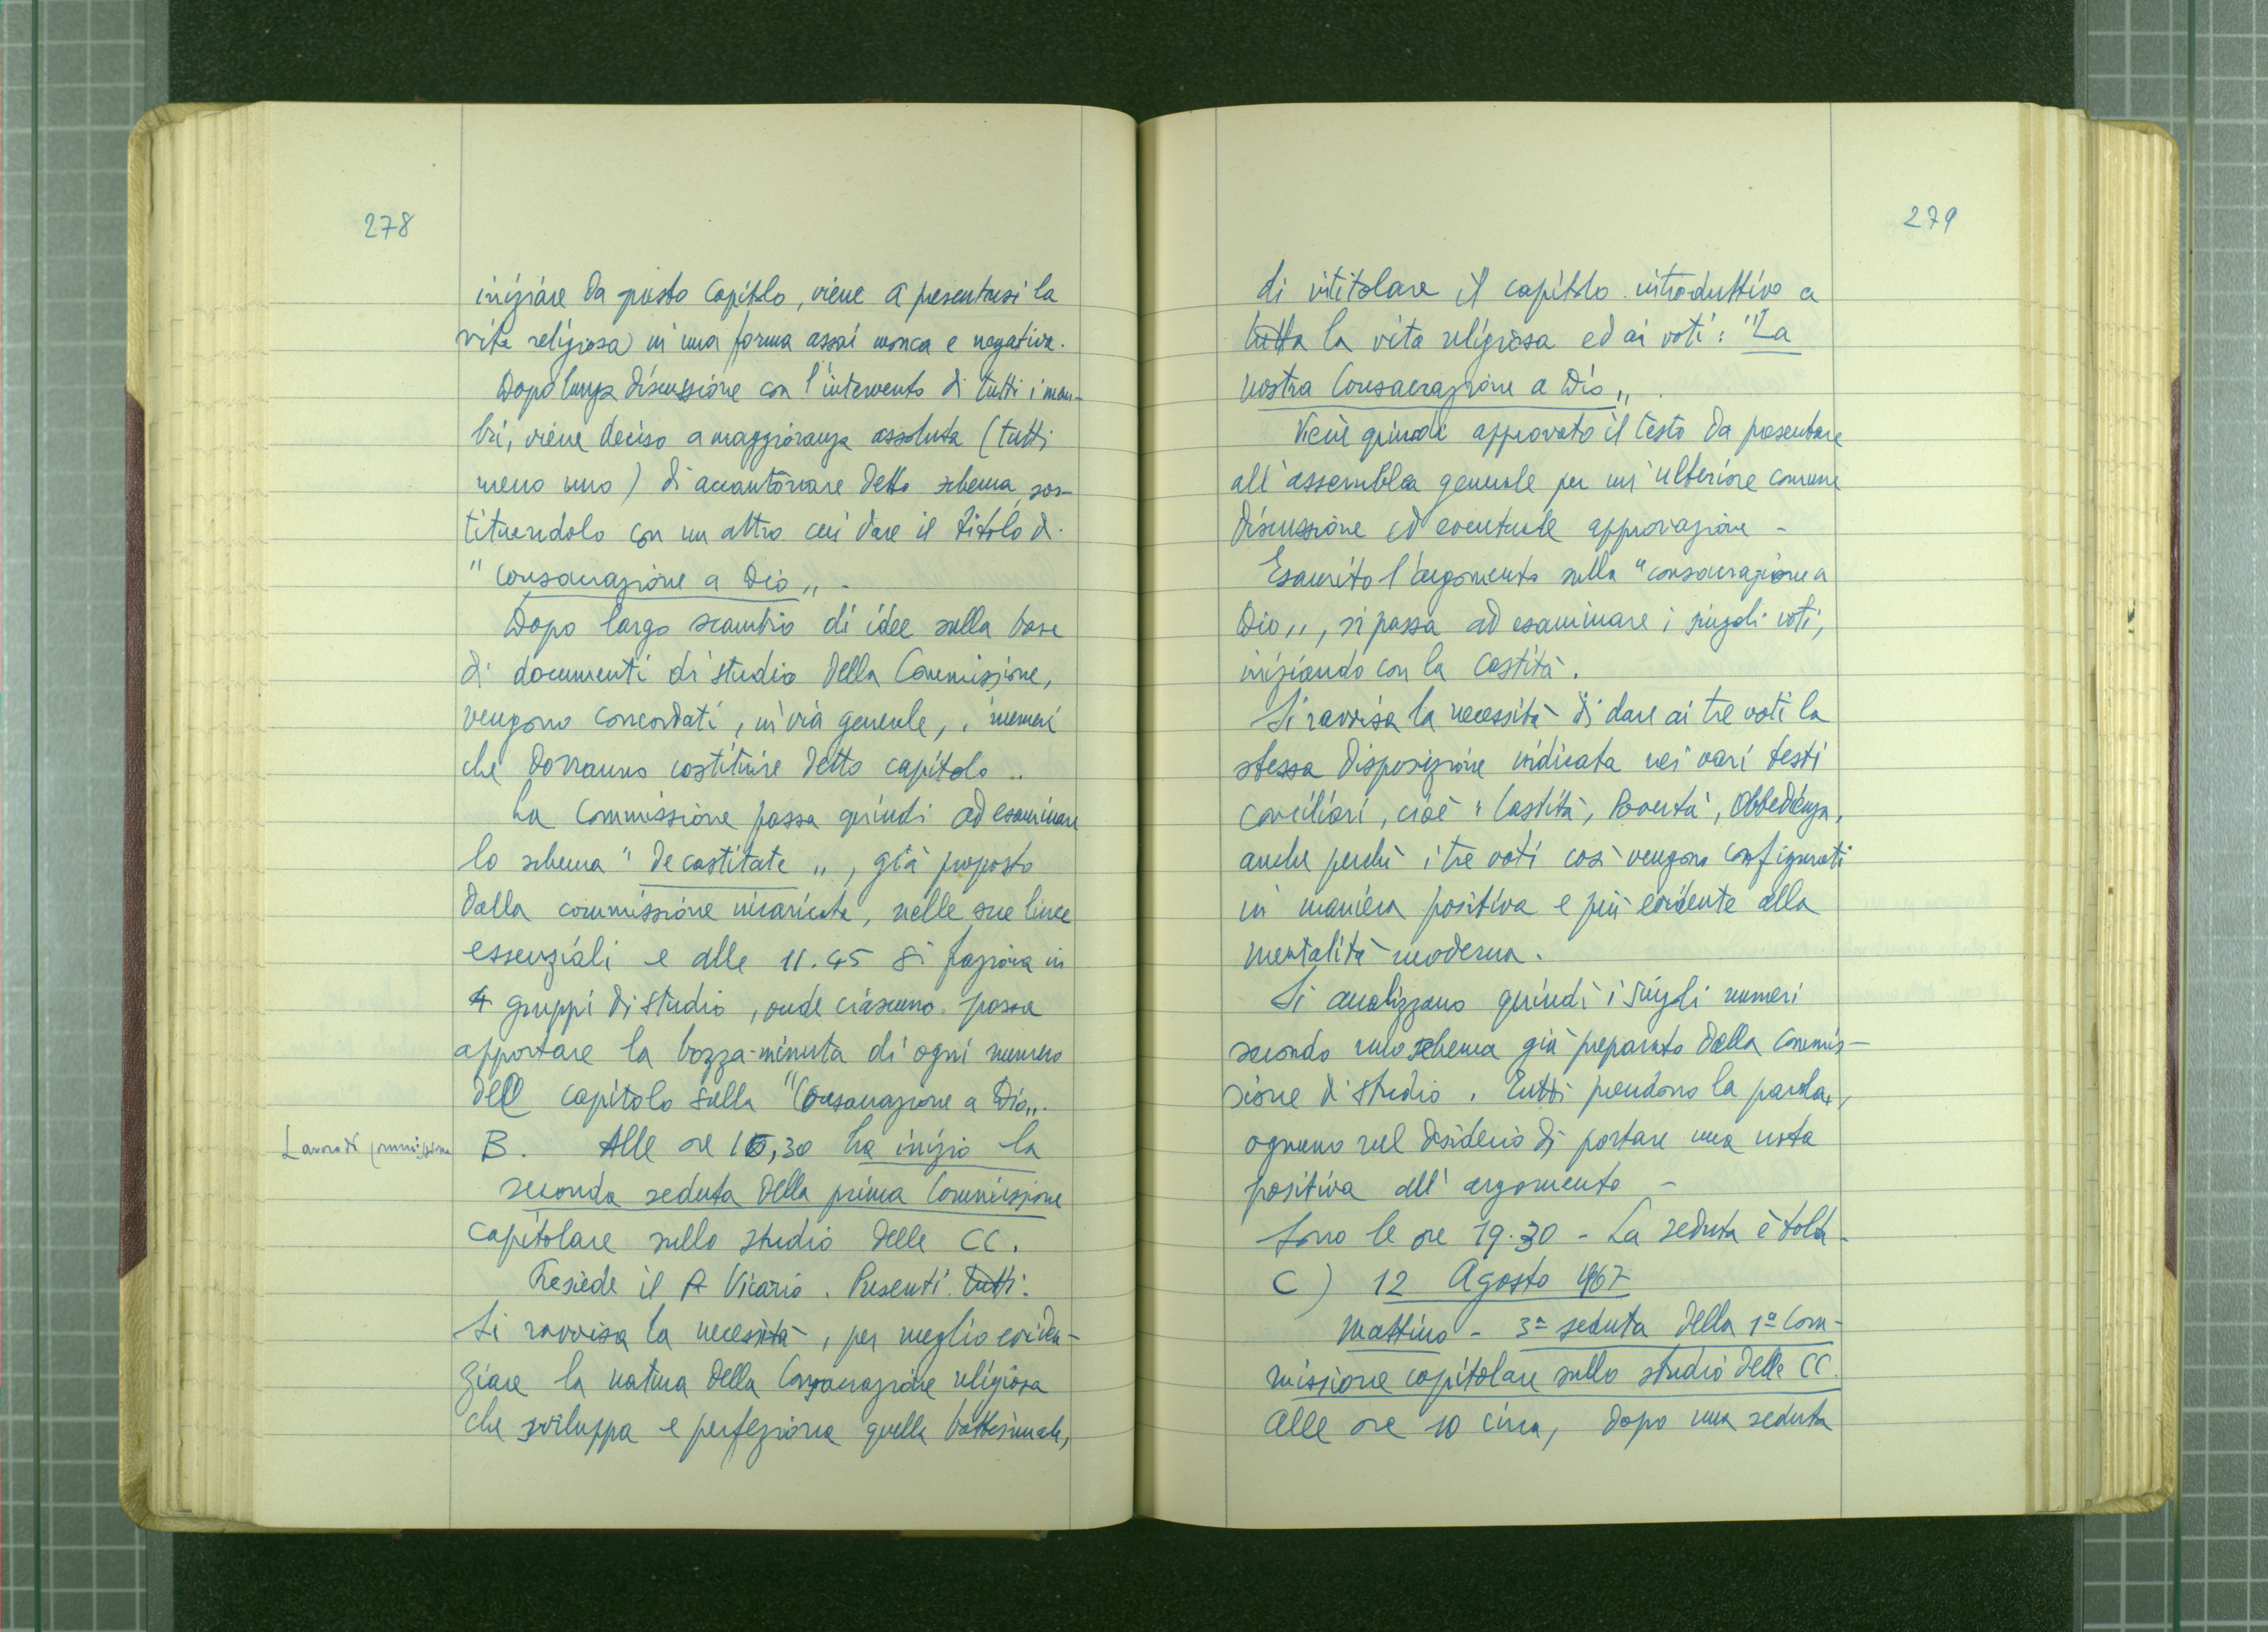 278
iniziare da questo capitolo, viene a presentarsi la
vita religiosa in una forma assai monca e negativa.
Dopo lunga discussione con l'intervento di tutti i mem-
bri, viene deciso a maggioranza assoluta (tutti
meno uno) di accantonare detto schema, sos-
tituendolo con un altro cui dare il titolo di
"Consacrazione a Dio„ -
Dopo largo scambio di idee sulla base
di documenti di studio della Commissione,
vengono concordati, in via generale, i numeri
che dovranno costituire detto capitolo..
La Commissione passa quindi ad esaminare
lo schema "De castitate„, già proposto
dalla commissione incaricata, nelle sue linee
essenziali e alle 11.45 si faziona in
4 gruppi di studio, onde ciascuno possa
apportare la bozza-minuta di ogni numero
dell capitolo sulla "Consacrazione a Dio„.
Lavoro di commissione
B. Alle ore 16,30 ha inizio la
seconda seduta della prima Commissione
capitolare sullo studio delle CC.
Presiede il P. Vicario. Presenti tutti.
Si ravvisa la necessità, per meglio eviden-
ziare la natura della Consacrazione religiosa
che sviluppa e perfeziona quella battesimale,
279
di intitolare il capitolo introduttivo a
tutta la vita religiosa ed ai voti: "La
nostra Consacrazione a Dio„.
Viene quindi approvato il testo da presentare
all'assemblea generale per un'ulteriore comune
discussione ed eventuale approvazione -
Esaurito l'argomento sulla "consacrazione a
Dio„, si passa ad esaminare i singoli voti,
iniziando con la castità.
Si ravvisa la necessità di dare ai tre voti la
stessa disposizione indicata nei vari testi
conciliari, cioè: Castità, Povertà, Obbedienza,
anche perché i tre voti così vengono configurati
in maniera positiva e più evidente alla
mentalità moderna.
Si analizzano quindi i singoli numeri
secondo uno schema già preparato dalla Commis-
sione di studio. Tutti prendono la parola,
ognuno nel desiderio di portare una nota
positiva all'argomento -
Sono le ore 19.30 - La seduta è tolta -
C) 12 Agosto 1967
Mattino - 3ª seduta della 1ª Com-
missione capitolare sullo studio delle CC.
Alle ore 10 circa, dopo una seduta